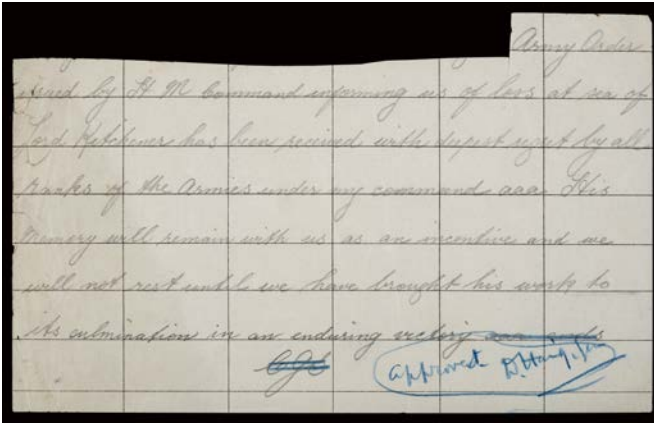 Army Order
issued by H M Command informing us of loss at sea of
Lord Kitchener has been received with deepest regret by all
ranks of the Armies under my command aaa His
memory will remain with us as an incentive and we
will not rest until we have brought his work to
its culmination in an enduring victory aaa ends
approved D. Haig. Gen